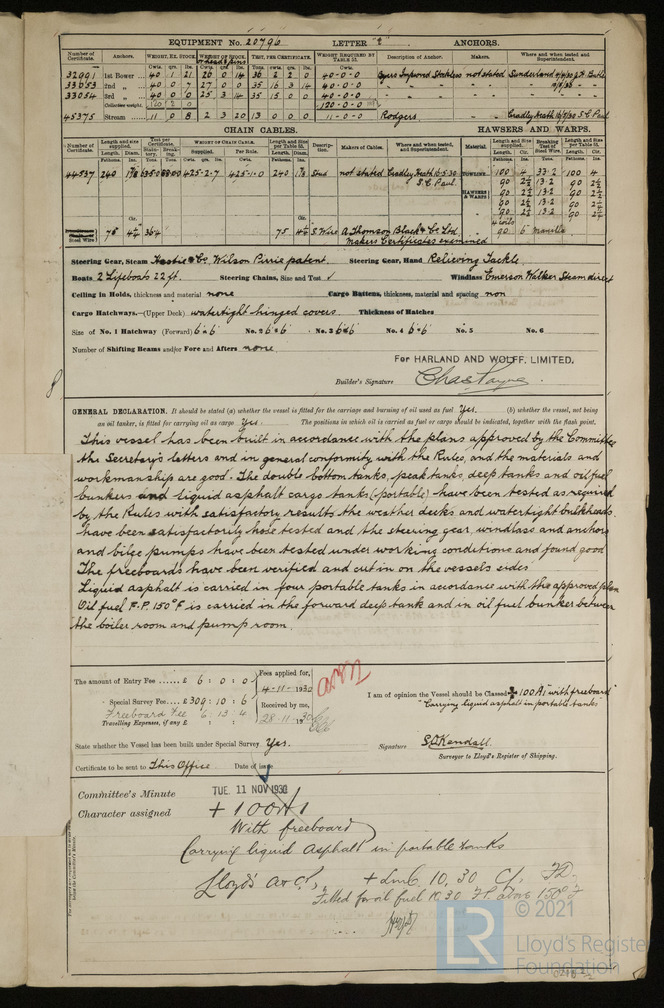 EQUIPMENT No. 20796 LETTER "E" ANCHORS.
Number of Certificate. Anchors. WEIGHT, EX. STOCK. WEIGHT OF STOCK TEST, PER CERTIFICATE. WEIGHT REQUIRED BY TABLE 53. Description of Anchor. Makers. Where and when tested and Superintendent.
Cwts. qrs. lbs. Cwts. qrs. lbs. Tons. cwts. qrs. lbs. Cwts.
32991 1st Bower 40 1 21 26 0 14 36 2 2 0 40-0-0 Byers Improved Stockless not stated Sunderland
33053 2nd " 40 0 7 27 0 0 35 16 3 14 40-0-0
33054 3rd " 40 0 0 25 3 14 35 15 0 0 40-0-0
Collective weight. 120 2 0 120-0-0
45375 Stream 11 0 8 2 3 20 13 0 0 0 11-0-0 Rodgers Cradley Heath 16/5/30 S.C. Paul
CHAIN CABLES. HAWSERS AND WARPS.
Number of Certificate. Length and size supplied. Test per Certificate. WEIGHT OF CHAIN CABLE. Length and size per Table 53. Description. Makers of Cables. Where and when tested, and Superintendent. Material. Length and size supplied. Breaking Test of Steel Wire. Length and size per Table 53.
Length. Diam. Statutory. Breaking. Supplied. Per Rule. Length. Diam. Length. Cir. Length. Cir.
44537 240 425-2-7 425-1-0 240 Stud not stated Cradley Heath 16.5.30 TOWLINE 100 4 33.2 100 4
S.C. Paul. 90 2½ 13.2 90 2½
HAWSERS & WARPS 90 2½ 13.2 90 2½
90 2½ 13.2 90 2½
90 2½ 13.2 90 2½
4 coils
75 4½ 36.4 75 4½ S. Wire A. Thomson Black & Co. Ltd 90 6 manilla
Makers Certificates examined
Steering Gear, Steam Hastie & Co. Wilson Pirrie patent. Steering Gear, Hand Relieving Tackle
Boats 2 Lifeboats 22 ft. Steering Chains, Size and Test √ Windlass Emerson Walker Steam direct
Ceiling in Holds, thickness and material none Cargo Battens, thickness, material and spacing non
Cargo Hatchways.—(Upper Deck) watertight hinged covers. Thickness of Hatches
Size of No. 1 Hatchway (Forward) 6 x 6 No. 2 6 x 6 No. 3 6 x 6 No. 4 6 x 6 No. 5 No. 6
Number of Shifting Beams and/or Fore and Afters none
For HARLAND AND WOLFF, LIMITED.
Builder's Signature Chas Payne
GENERAL DECLARATION. It should be stated (a) whether the vessel is fitted for the carriage and burning of oil used as fuel Yes. (b) whether the vessel, not being
an oil tanker, is fitted for carrying oil as cargo Yes. The positions in which oil is carried as fuel or cargo should be indicated, together with the flash point.
This vessel has been built in accordance with the plans approved by the Committee
the Secretary's letters and in general conformity with the Rules, and the materials and
workmanship are good. The double bottom tanks, peak tanks, deep tanks and oil fuel
bunkers and liquid asphalt cargo tanks (portable) have been tested as required
by the Rules with satisfactory results the weather decks and watertight bulkheads
have been satisfactorily hose tested and the steering gear, windlass and anchors
and bilge pumps have been tested under working conditions and found good
The freeboards have been verified and cut in on the vessels sides
Liquid asphalt is carried in four portable tanks in accordance with the approved plan
Oil fuel F.P. 150°F is carried in the forward deep tank and in oil fuel bunker between
the boiler room and pump room.
The amount of Entry Fee £ 6 : 0 : 0 Fees applied for,
4-11-1930
Special Survey Fee £ 309 : 10 : 6 Received by me,
Freeboard Fee 6 13 4 28-11-1930
Travelling Expenses, if any £
I am of opinion the Vessel should be Classed +100A1 "with freeboard"
"Carrying liquid asphalt in portable tanks"
State whether the Vessel has been built under Special Survey Yes.
Signature S.C. Kendall.
Surveyor to Lloyd's Register of Shipping.
Certificate to be sent to This Office Date of issue
Committee's Minute TUE. 11 NOV 1930
Character assigned +100A1
With freeboard
Carrying liquid asphalt in portable tanks
Lloyd's A & C.P. + LMC 10,30 CL FD.
Fitted for oil fuel 10.30 F.P. above 150°F
© 2021
LR
Lloyd's Register
Foundation